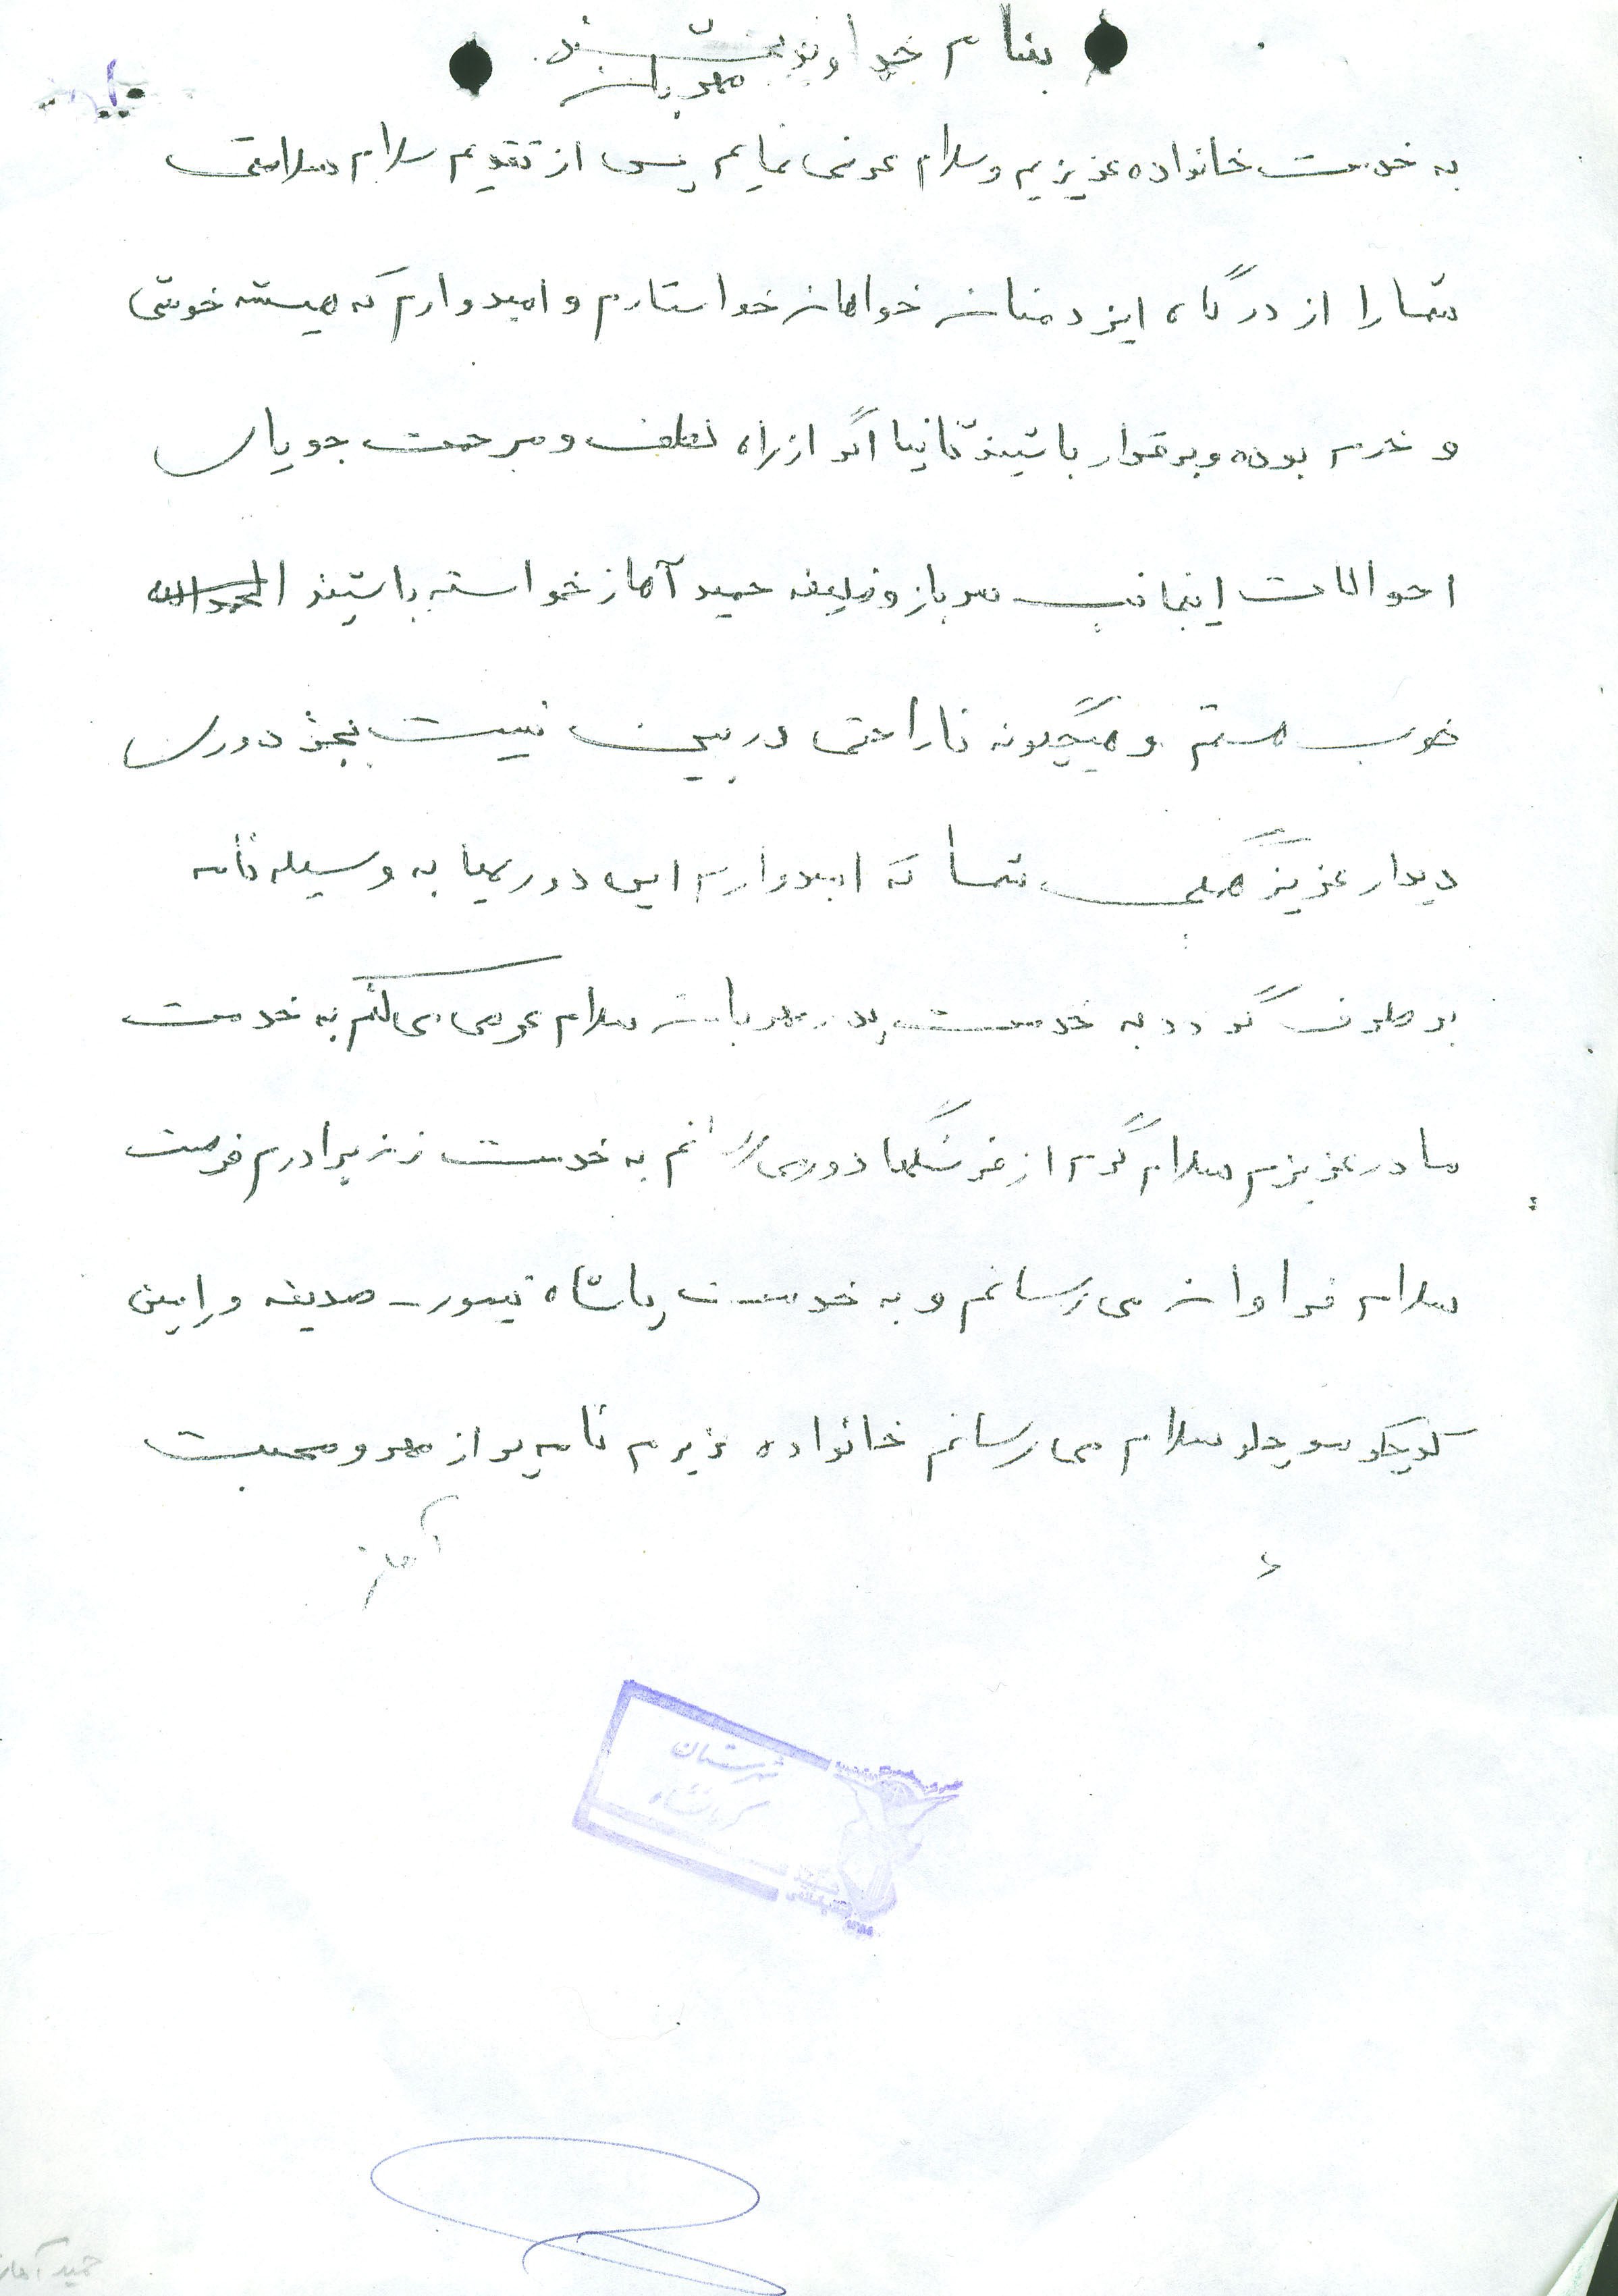 بنام خداوند بخشنده
مهربان
به خدمت خانواده عزیزیم وسلام عرض نمایم پس از تقدیم سلام سلامتی
شما را از درگاه ایزد منان خواهان خواستارم و امیدوارم که همیشه خوشی
و خرم بوده وبرقرار باشیند ثانیا اگر از راه لطف و مرحمت جویای
احوالات اینجانب سرباز وظیفه حمید آهاز خواسته باشیند الحمدالله
خوب هستم و هیچگونه ناراحتی در بین نیست بجز دوری
دیدار عزیز همگی شما که امیدوارم این دوریها به وسیله نامه
بر طرف گردد به خدمت پدر مهربان سلام عرض می کنم به خدمت
مادر عزیزم سلام گرم از فرسنگها دوری به خدمت زن برادرم فرصت
سلام فراوان می رسانم و به خدمت پاشاه تیمور - صدیقه و رامین
کوچکو سلام می رسانم خانواده عزیزم نامه پر از مهر و محبت
آهاز
شهرستان
کرمانشاه
حمید آهاز